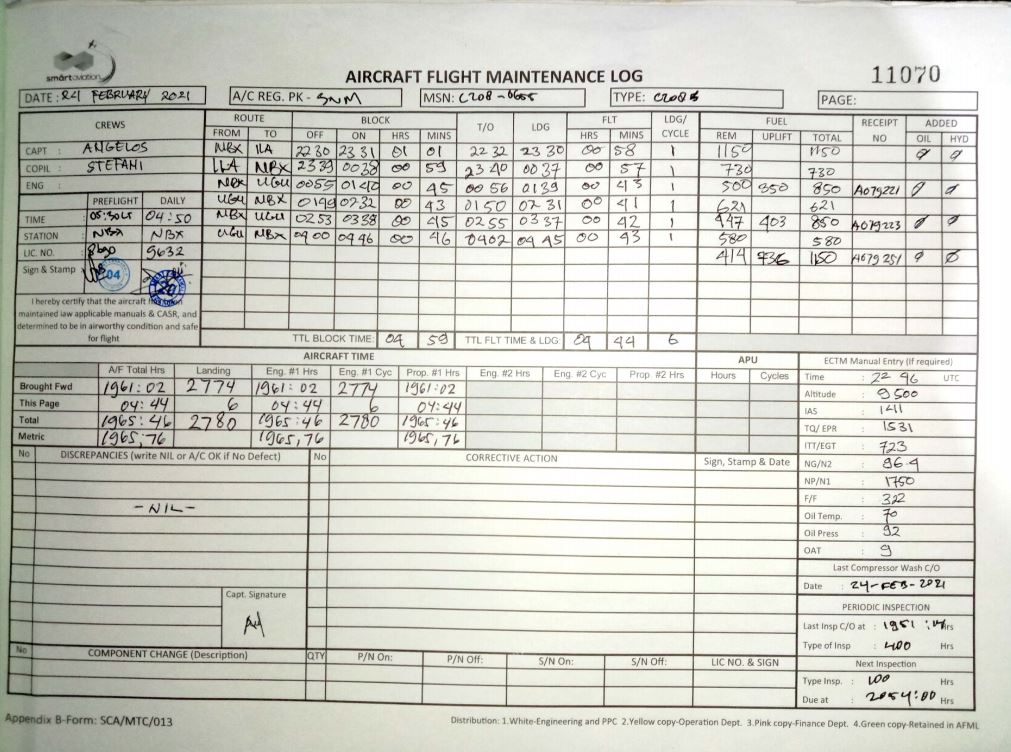 smart aviation
AIRCRAFT FLIGHT MAINTENANCE LOG 11070
DATE : 24 FEBRUARY 2021 A/C REG. PK - SNM MSN: C208-0655 TYPE: C208B PAGE:
CREWS ROUTE BLOCK T/O LDG FLT LDG/ CYCLE FUEL RECEIPT NO ADDED
FROM TO OFF ON HRS MINS HRS MINS REM UPLIFT TOTAL OIL HYD
CAPT : ANGELOS NBX ILA 2230 2331 01 01 2232 2330 00 58 1 1150 1150 0 0
COPIL : STEFANI ILA NBX 2339 0038 00 59 2340 0037 00 57 1 730 730
ENG : NBX UGU 0055 0140 00 45 0056 0139 00 43 1 500 350 850 A079221 0 0
PREFLIGHT DAILY UGU NBX 0149 0232 00 43 0150 0231 00 41 1 621 621
TIME : 04:50 NBX UGU 0253 0338 00 45 0255 0337 00 42 1 447 403 850 A079223 0 0
STATION : NBX NBX UGU NBX 0400 0446 00 46 0402 0445 00 43 1 580 580
LIC. NO. : 9632 414 736 1150 A079251 0 0
Sign & Stamp 04 20
I hereby certify that the aircraft has been
maintained iaw applicable manuals & CASR, and
determined to be in airworthy condition and safe
for flight
TTL BLOCK TIME: 04 59 TTL FLT TIME & LDG: 04 44 6
AIRCRAFT TIME APU ECTM Manual Entry (If required)
A/F Total Hrs Landing Eng. #1 Hrs Eng. #1 Cyc Prop. #1 Hrs Eng. #2 Hrs Eng. #2 Cyc Prop. #2 Hrs Hours Cycles
Time : 22 46 UTC
Brought Fwd 1961:02 2774 1961:02 2774 1961:02
Altitude : 9500
This Page 04:44 6 04:44 6 04:44
IAS : 141
Total 1965:46 2780 1965:46 2780 1965:46
TQ/ EPR : 1531
Metric 1965,76 1965,76 1965,76
ITT/EGT : 723
No DISCREPANCIES (write NIL or A/C OK if No Defect) No CORRECTIVE ACTION Sign, Stamp & Date
NG/N2 : 96.4
NP/N1 : 1750
- NIL -
F/F : 322
Oil Temp. : 70
Oil Press : 92
OAT : 9
Last Compressor Wash C/O
Date : 24-FEB-2021
Capt. Signature
PERIODIC INSPECTION
Last Insp C/O at : Hrs
Type of Insp : 400 Hrs
No COMPONENT CHANGE (Description) QTY P/N On: P/N Off: S/N On: S/N Off: LIC NO. & SIGN
Next Inspection
Type Insp. : 100 Hrs
Due at : 2054:00 Hrs
Appendix B-Form: SCA/MTC/013
Distribution: 1.White-Engineering and PPC 2.Yellow copy-Operation Dept. 3.Pink copy-Finance Dept. 4.Green copy-Retained in AFML